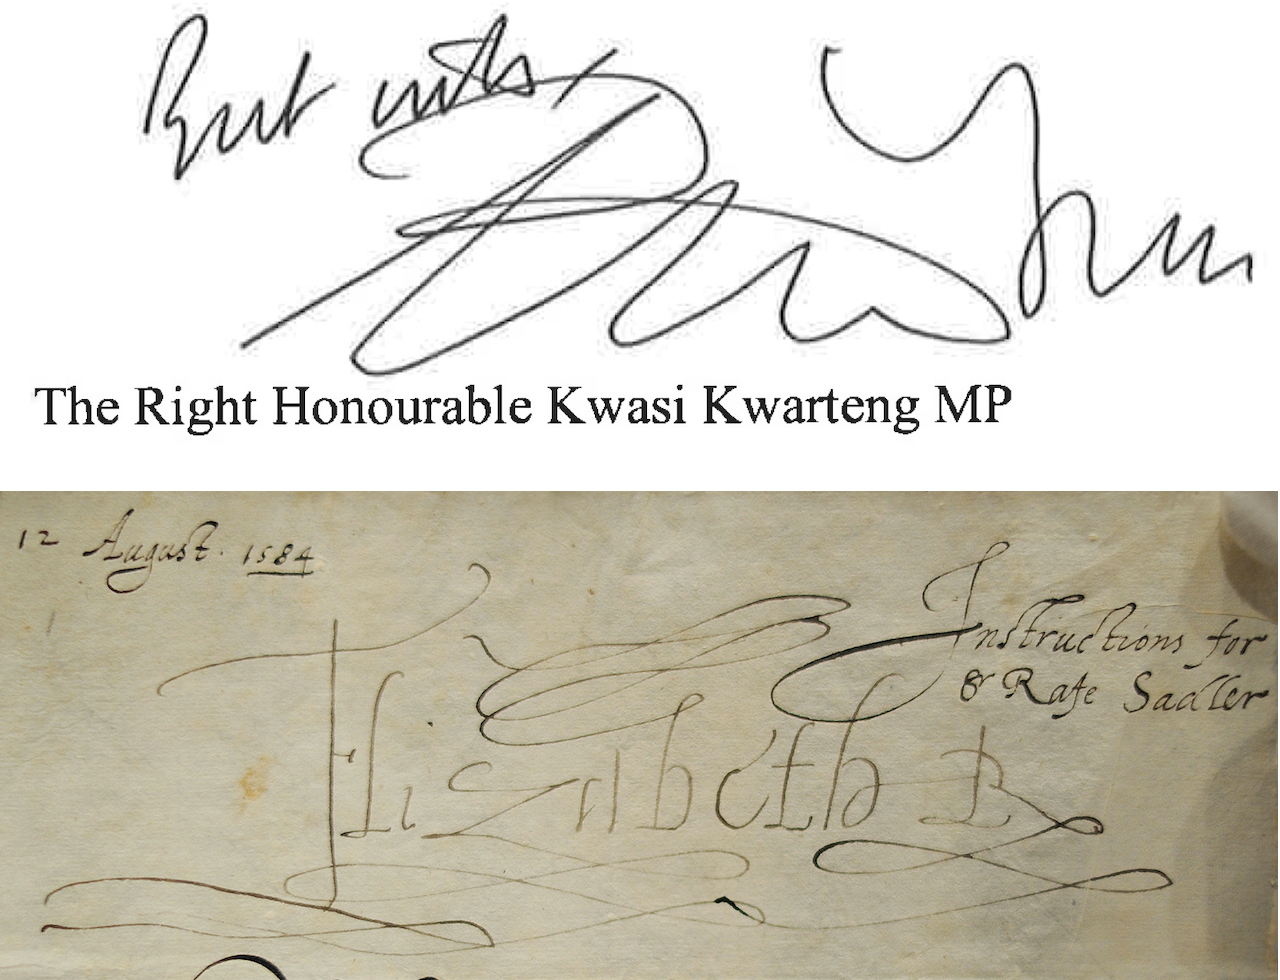 The Right Honourable Kwasi Kwarteng MP
12 August. 1584
Instructions for
Sr Rafe Sadler
Elizabeth R